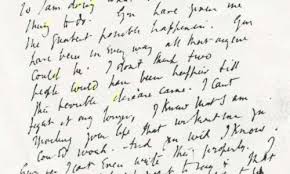 So I am doing what
thing to do. You have given me
the greatest possible happiness. You
have been in every way all that anyone
could be. I don't think two
people could have been happier till
this terrible disease came. I can't
fight it any longer, I know that I am
spoiling your life, that without me you
could work. And you will I know.
You see I can't even write this properly. I